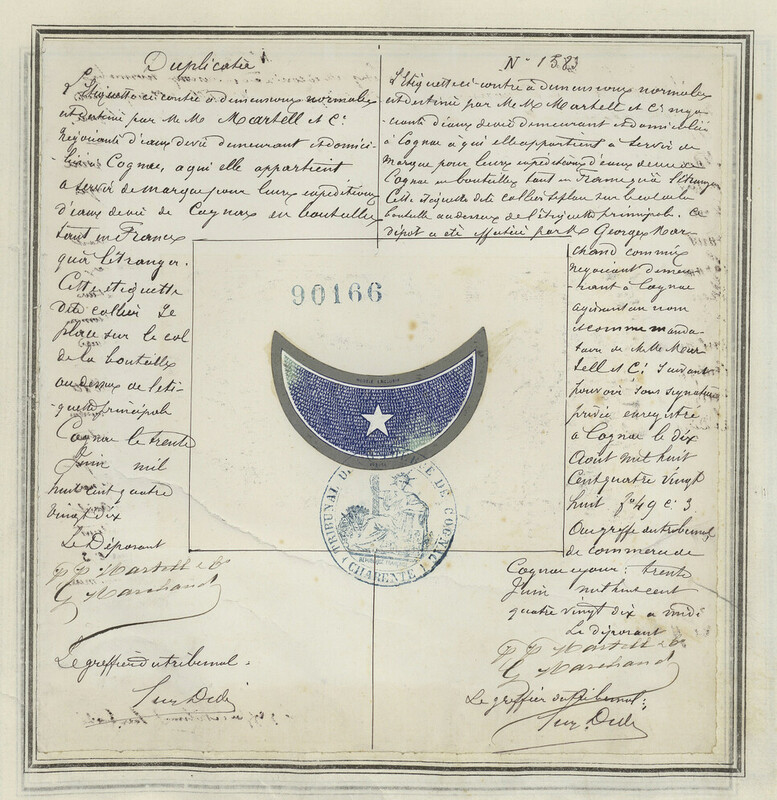 Duplicata
L'Etiquette ci-contre à dimensions normales
est destiné par M.M. Martell et Cie
Négociants d'eaux de vie demeurant et domici-
liés à Cognac, à qui elle appartient
à servir de marque pour leurs expéditions
d'eaux de vie de Cognac en bouteilles
tant en France
qu'à l'étranger.
Cette etiquette
dite collier se
place sur le col
de la bouteille
au dessus de l'eti-
quette principale
Cognac le trente
Juin mil
huit cent quatre
vingt dix
Le Déposant
Martell & Co
G Marchand
Le greffier du tribunal.
N° 1583
L'Etiquette ci-contre à dimensions normales
est destiné par M.M. Martell et Cie négo-
ciants d'eaux de vie demeurant et domiciliés
à Cognac à qui elle appartient à servir de
marque pour leurs expéditions d'eaux de vie de
Cognac en bouteilles tant en France qu'à l'étranger
Cette étiquette dite collier se place sur le col de la
bouteille au dessus de l'étiquette principale. Ce
dépot a été effectué par M. Georges Mar-
chand commis
négociant demeu-
rant à Cognac
agissant au nom
et comme manda-
taire de M.M. Mar-
tell et Cie suivant
pouvoir sous signature
privée enregistré
à Cognac le dix
Août mil huit
Cent quatre vingt
huit fo 49 c. 3.
Au greffe du tribunal
de commerce de
Cognac ce jour: trente
Juin mil huit cent
quatre vingt dix à midi
Le déposant
Martell & Co
G Marchand
Le greffier du Tribunal:
90166
TRIBUNAL DE COGNAC
(CHARENTE)